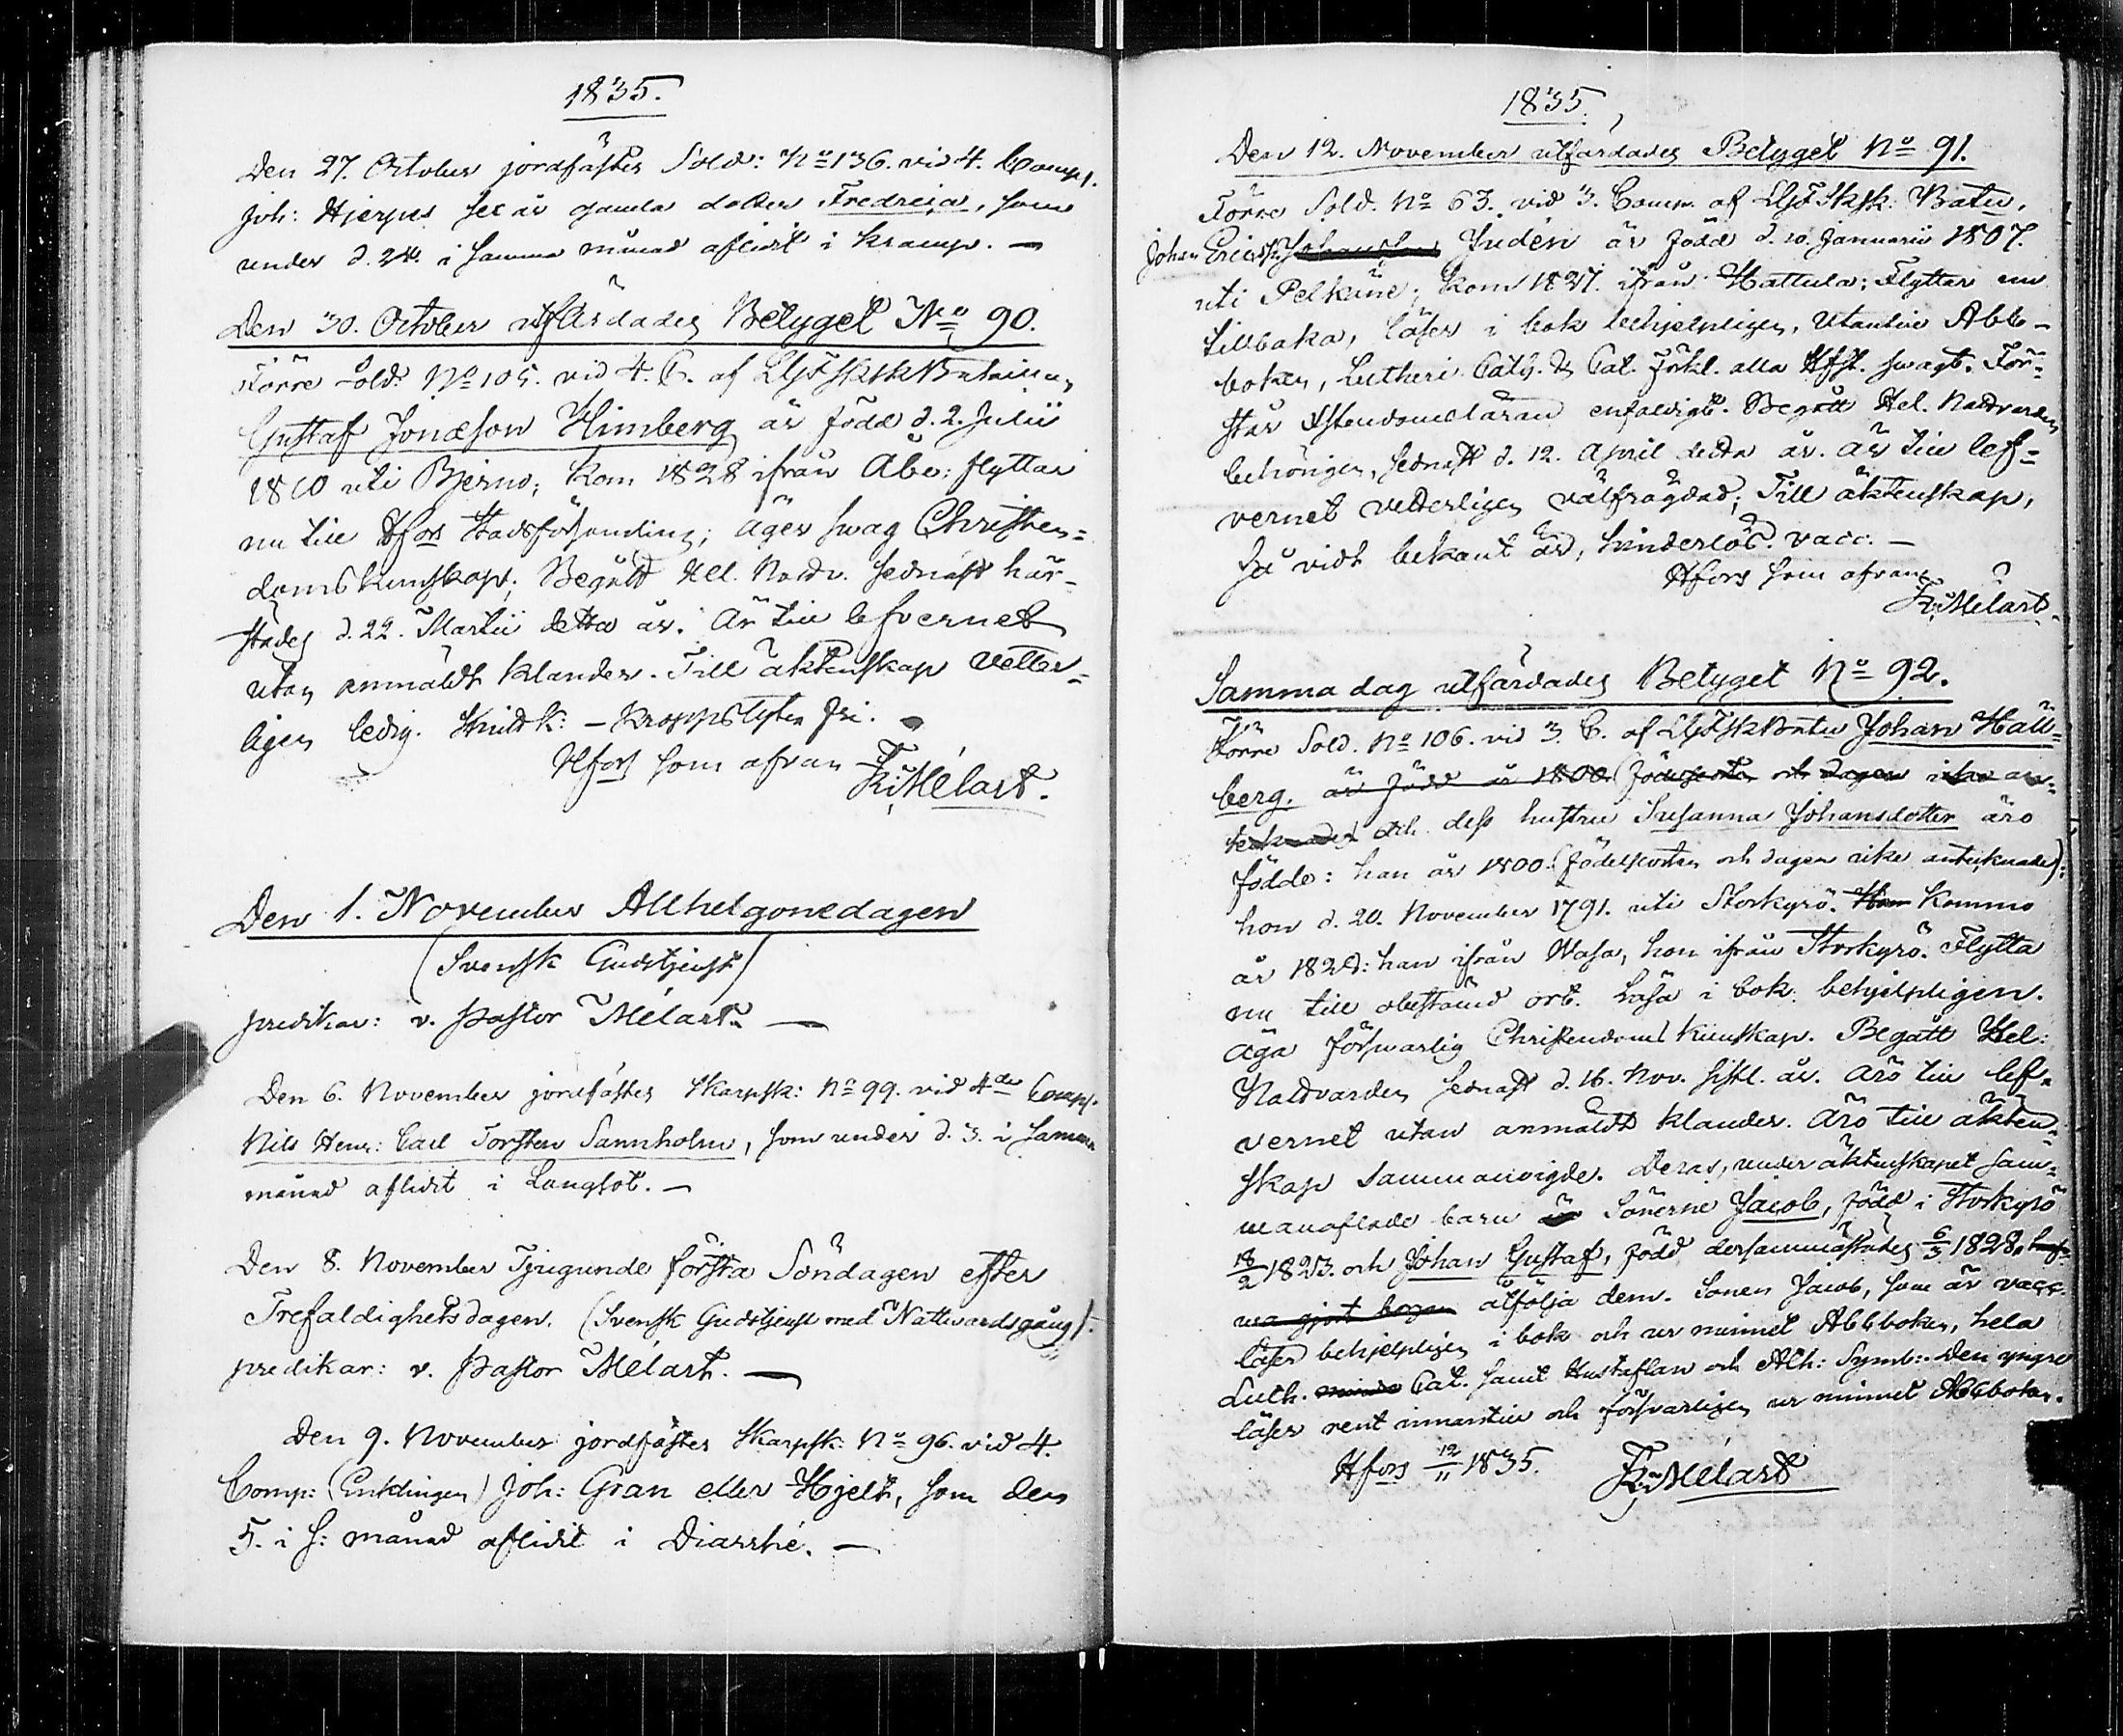 1835.
Den 27. October jordfästes Sold: No 136. vid 4. Comp.
Joh: Hjerpes sex år gamla dotter Fredrica, som
under d. 24. i samma månad aflidit i kramp. —
Den 30. October utfärdades Betyget No 90.
Förre Sold. No 105. vid 4. C. af LGFSkskBataillon,
Gustaf Jonæson Himberg är född d. 2. Julii
1810 uti Bjerno; kom 1828 ifrån Åbo; flyttar
nu till Hfors Stadsförsamling; äger swag Christen=
domskunskap; Begått H. Nattv. sednast här-
städes d. 22. Martii detta år. Är till lefvernet
utan anmäldt klander. Till äktenskap vetter=
ligen ledig. — kroppslyten fri.
Hfors som ofvan
F. Mélart.
Den 1. November Allhelgonedagen
(Svensk Gudstjenst)
predikar: v. Pastor Mélart. —
Den 6. November jordfästes Skarpsk: No 99. vid 4de Comp.
Nils Henr: Carl Torsten Sannholm, som under d. 3. i samma
månad aflidit i Lungsot. —
Den 8. November Tjugunde första Söndagen efter
Trefaldighetsdagen. (Svensk Gudstjenst med Nattvardsgång).
predikar: v. Pastor Mélart. —
Den 9. November jordfästes Skarpsk: No 96. vid 4.
Comp: (Enklingen) Joh: Gran eller Hjelt, som den
5. i s: månad aflidit i Diarrhé. —
1835.
Den 12. November utfärdades Betyget No 91.
Förre Sold. No 63. vid 3. Comp. af LGFSksk: Batn,
Johan Ericss. Judén är född d. 10. Januarii 1807.
uti Pelkäne; kom 1827. ifrån Hattula; Flyttar nu
tillbaka, läser i bok behjelpligen, utantill Abb-
boken, Lutheri Cath. & Cat. förkl. alla Hfst. swagt. För=
står Christendomsläran enfaldigt. Begått Hel. Nattvarden
behörigen, sednast d. 12. April detta år. Är till lef=
vernet vetterligen välfrägdad; Till äktenskap,
så vidt bekant är, hinderlös. vacc. —
Hfors som ofvan
F. Mélart.
Samma dag utfärdades Betyget No 92.
Förre Sold. No 106. vid 3. C. af LGFSkskBatn Johan Häll=
berg. är född år 1800. (födelseorten och dagen icke an=
tecknade) och dess hustru Susanna Johansdotter äro
födde: han år 1800. (födelseorten och dagen icke antecknade);
hon d. 20. November 1791. uti Storkyrö. Kommo
år 1820: han ifrån Wasa, hon ifrån Storkyrö. Flytta
nu till obestämd ort. Läsa i bok behjelpligen.
Äga försvarlig Christendoms kunskap. Begått Hel:
Nattvarden sednast d. 16. Nov. sistl. år. Äro till lef-
vernet utan anmäldt klander. Äro till äkten=
skap sammanvigde. Deras, under äktenskapet sam=
manaflade barn Sönerne Jacob, född i Storkyrö
18/2 1823. och Johan Gustaf, född dersammastädes 6/3 1828,
åtfölja dem. Sonen Jacob, som är vacc.
läser behjelpligen i bok och ur minnet Abbboken, hela
Luth. Cat. samt Hustaflan och Ath: Symb:. Den yngre
läser rent innantill och försvarligen ur minnet Abbboken.
Hfors 12/11 1835. F. Mélart